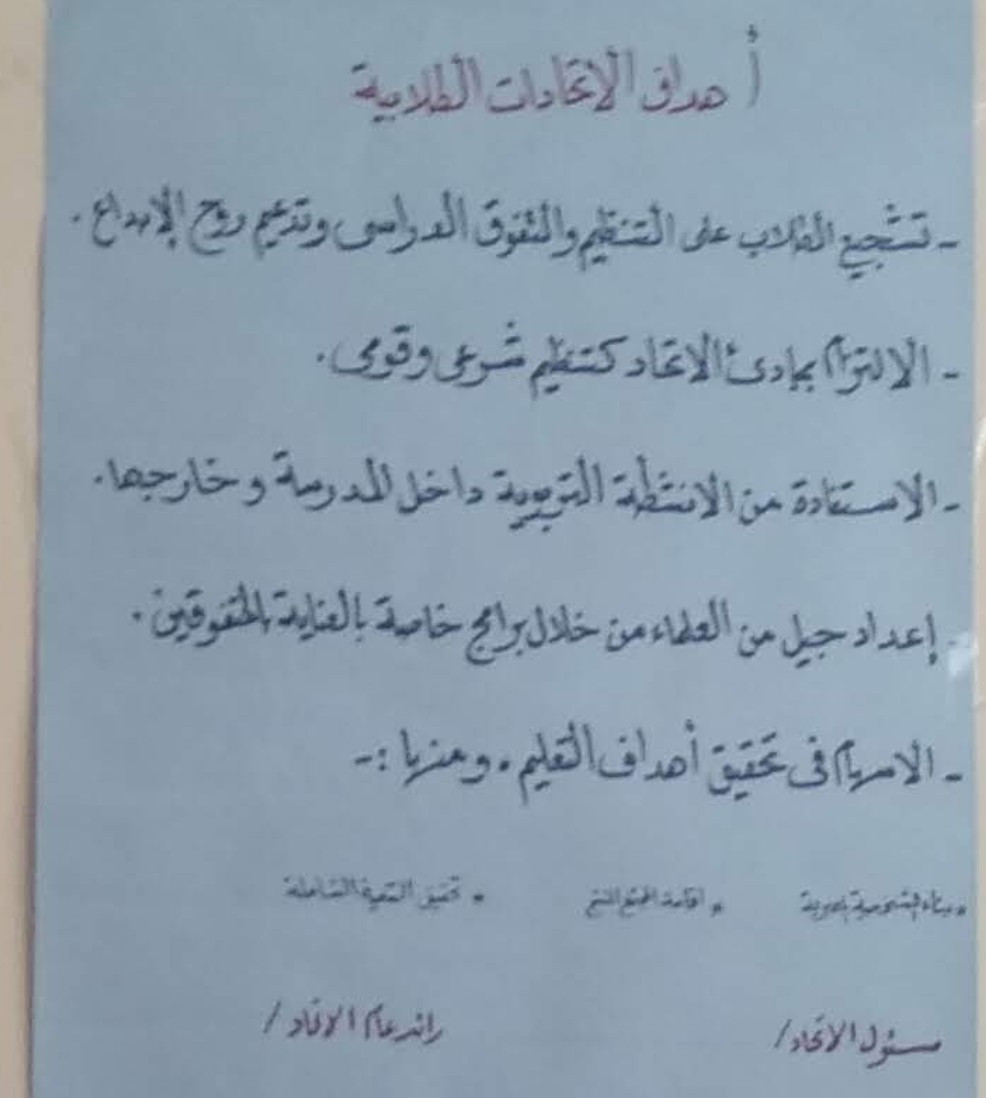 أهداف الاتحادات الطلابية
- تشجيع الطلاب على التنظيم والتفوق الدراسى وتدعيم روح الإبداع .
- الالتزام بمبادئ الاتحاد كتنظيم شرعى وقومى .
- الاستفادة من الانشطة التربوية داخل المدرسة وخارجها .
- إعداد جيل من العلماء من خلال برامج خاصة بالعناية بالمتفوقين .
- الاسهام فى تحقيق أهداف التعليم . ومنها :-
* بناء الشخصية المصرية * اقامة المجتمع المنتج * تحقيق التنمية الشاملة
مسئول الاتحاد/ رائد عام الاتحاد /